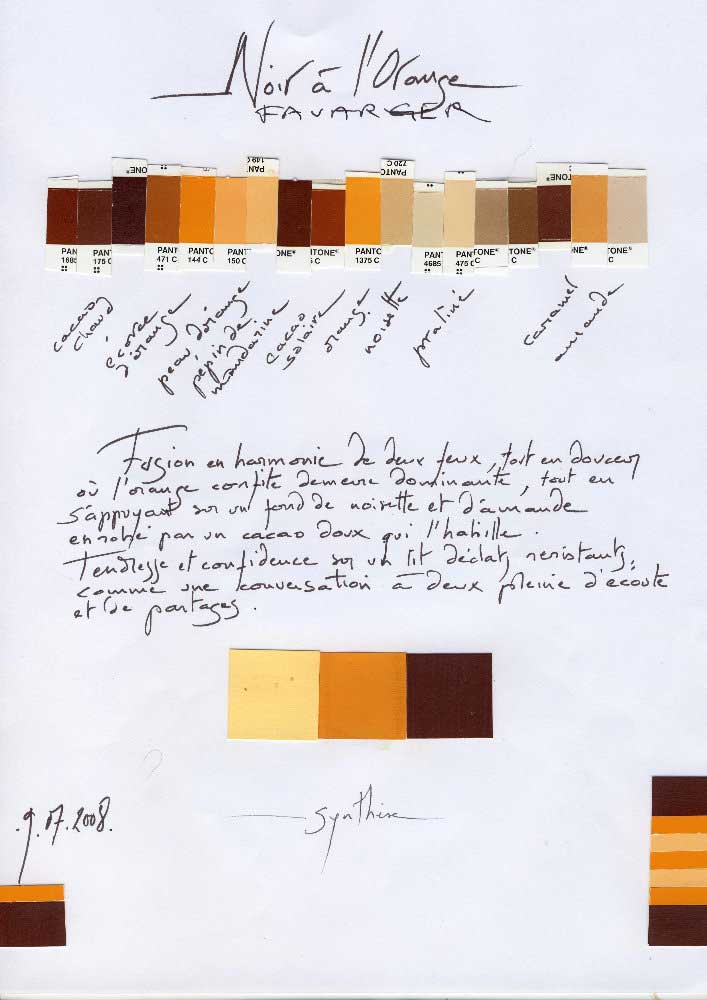 Noir à l'Orange
FAVARGER
PANTONE®
149 C
PANTC
720 C
PANTONE®
PAN
1685
PAN
175 C
PANT
471 C
PANTC
144 C
PANT
150 C
TONE®
TONE®
5 C
PANTC
1375 C
PAN
4685
PANT
475 C
TONE®
C
TONE®
C
NE®
C
TONE®
C
cacao
chaud
écorce
d'orange
peau d'orange
pépin de
mandarine
cacao
solaire
orange
noisette
praliné
caramel
amande
Fusion en harmonie de deux feux, tout en douceur
où l'orange confite demeure dominante, tout en
s'appuyant sur un fond de noisette et d'amande
enrobé par un cacao doux qui l'habille.
Tendresse et confidence sur un lit d'éclats resistants,
comme une conversation à deux pleine d'écoute
et de partages.
9.07.2008.
synthèse